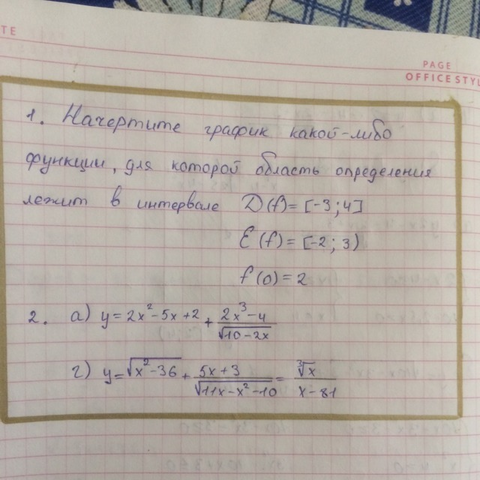 TE
PAGE
OFFICE STYL
1. Начертите график какой-либо
функции, для которой область определения
лежит в интервале D(f)=[-3;4]
E(f)=[-2;3)
f(0)=2
2. а) y=2x²-5x+2+\frac{2x³-4}{\sqrt{10-2x}}
г) y=\sqrt{x²-36}+\frac{5x+3}{\sqrt{11x-x²-10}}=\frac{\sqrt[3]{x}}{x-81}